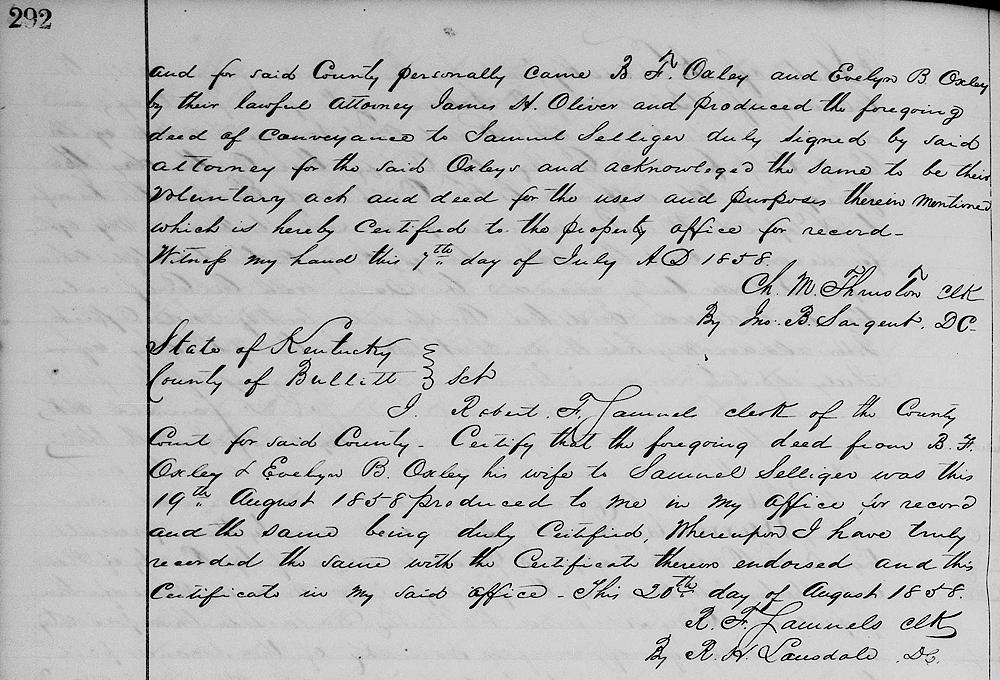 292
and for said County personally came B. F. Oxley and Evelyn B. Oxley
by their lawful attorney James H. Oliver and produced the foregoing
deed of conveyance to Samuel Selliger duly signed by said
attorney for the said Oxleys and acknowledged the same to be their
voluntary act and deed for the uses and purposes therein mentioned
which is hereby certified to the property office for record -
Witness my hand this 7th day of July AD 1858.
Ch. M. Thruston Clk
By Jno. B. Sargent. DC-
State of Kentucky
County of Bullitt } Sct
I. Robert. F. Samuel clerk of the County
Court for said County - Certify that the foregoing deed from B. F.
Oxley & Evelyn B. Oxley his wife to Samuel Selliger was this
19th August 1858 produced to me in my office for record
and the same being duly Certified, Whereupon I have truly
recorded the same with the Certificate thereon endorsed and this
Certificate in my said office - This 20th day of August 1858.
R. F. Samuels Clk
By R. H. Lonsdale. DC.